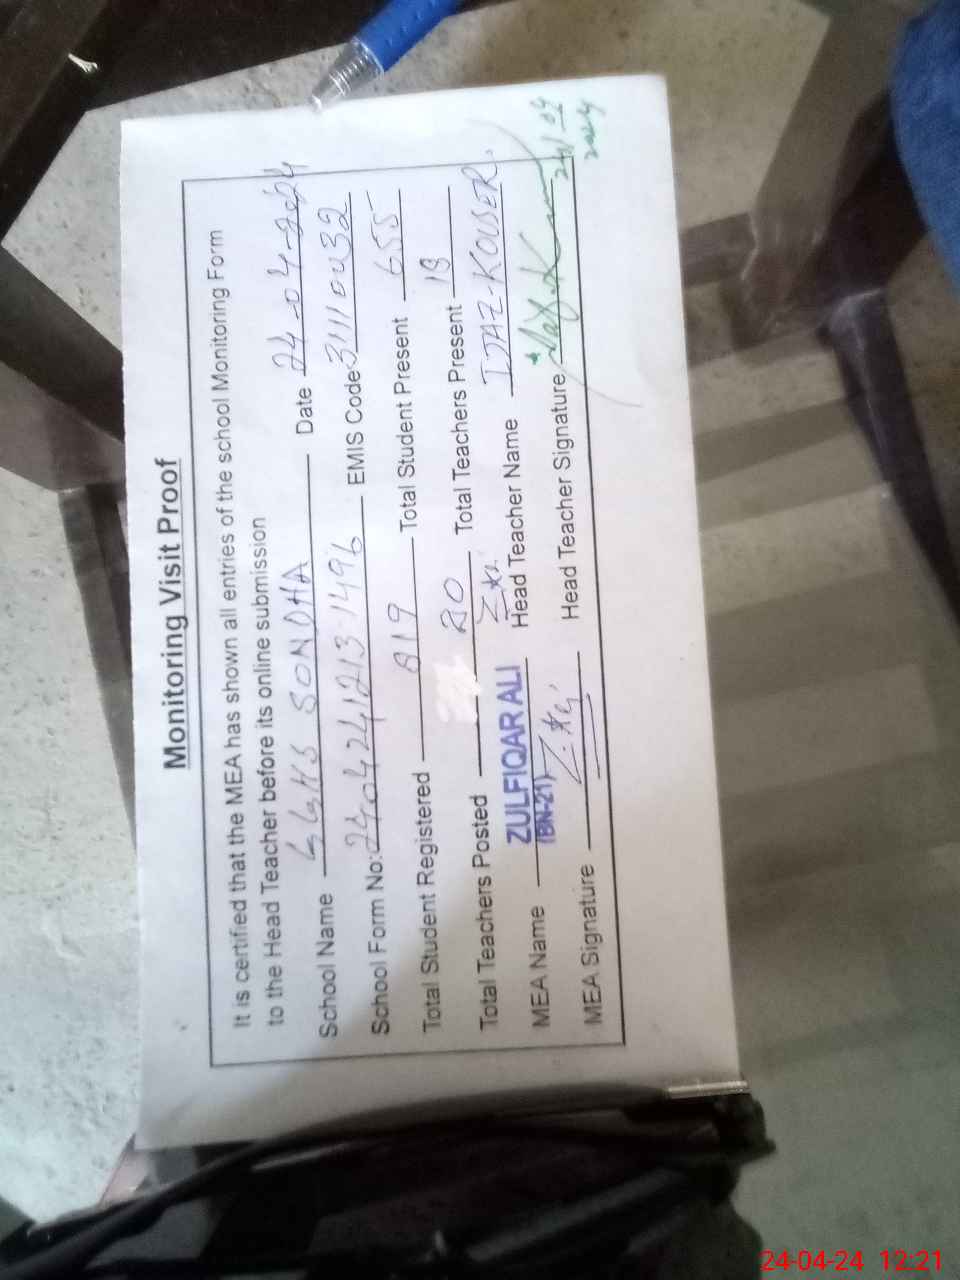 Monitoring Visit Proof
It is certified that the MEA has shown all entries of the school Monitoring Form
to the Head Teacher before its online submission
School Name GGHS SONDHA Date 24-04-2024
School Form No: 240424121213-1496 EMIS Code: 31110032
Total Student Registered 819 Total Student Present 655
Total Teachers Posted 20 Total Teachers Present 18
MEA Name ZULFIQAR ALI Head Teacher Name IJAZ-KOUSER.
(BN-21)
MEA Signature Head Teacher Signature
24/04
2024
24-04-24 12:21